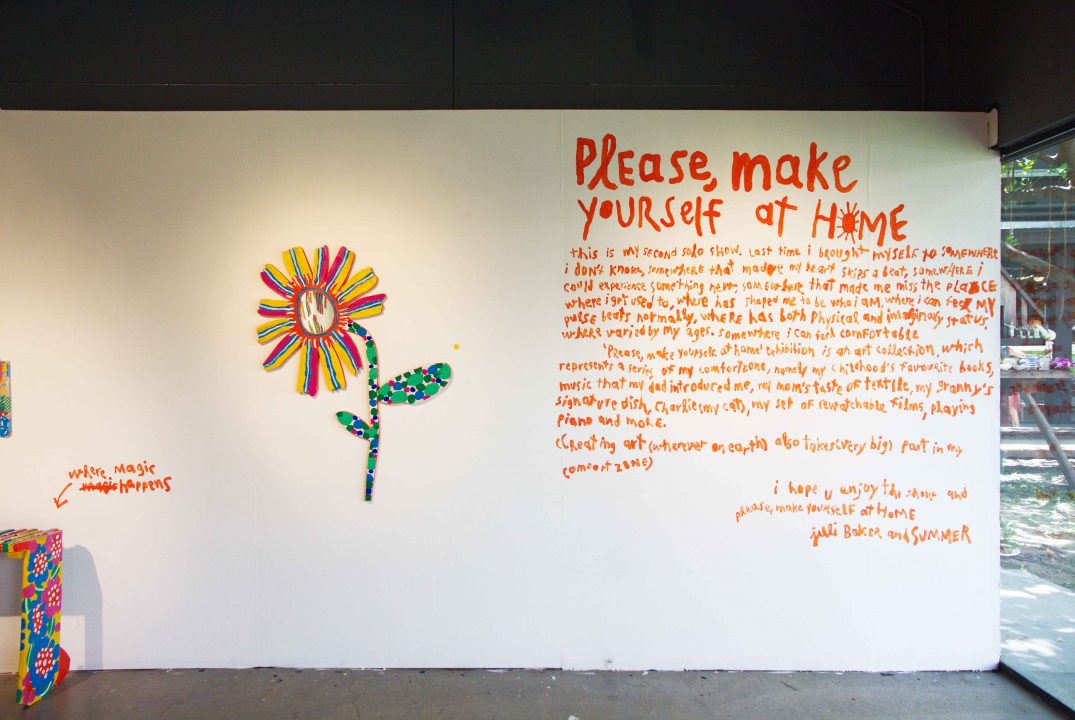 Please, make
yourself at HOME
this is my second solo show. Last time i brought myself to somewhere
i don't know, somewhere that made my heart skips a beat, somewhere i
could experience something new, somewhere that made me miss the place
where i get used to, where has shaped me to be who i am, where i can feel my
pulse beats normally, where has both physical and imaginary status,
where varied by my ages. somewhere i can feel comfortable
'Please, make yourself at home' exhibition is an art collection, which
represents a series of my comfortzone, namely my childhood's favourite books,
music that my dad introduced me, my mom's taste of textile, my granny's
signature dish, Charlie (my cat), my set of rewatchable films, playing
piano and more.
(Creating art (wherever on earth) also takes (very big) part in my
comfort zone)
i hope u enjoy the show and
please, make yourself at HOME
juli BAKER and SUMMER
where magic
magic happens